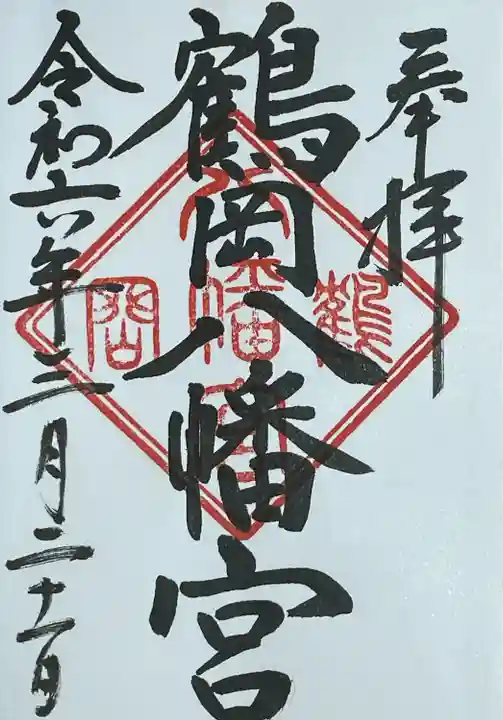 奉拝
鶴岡八幡宮
令和六年三月二十一日
鶴
八幡宮
岡